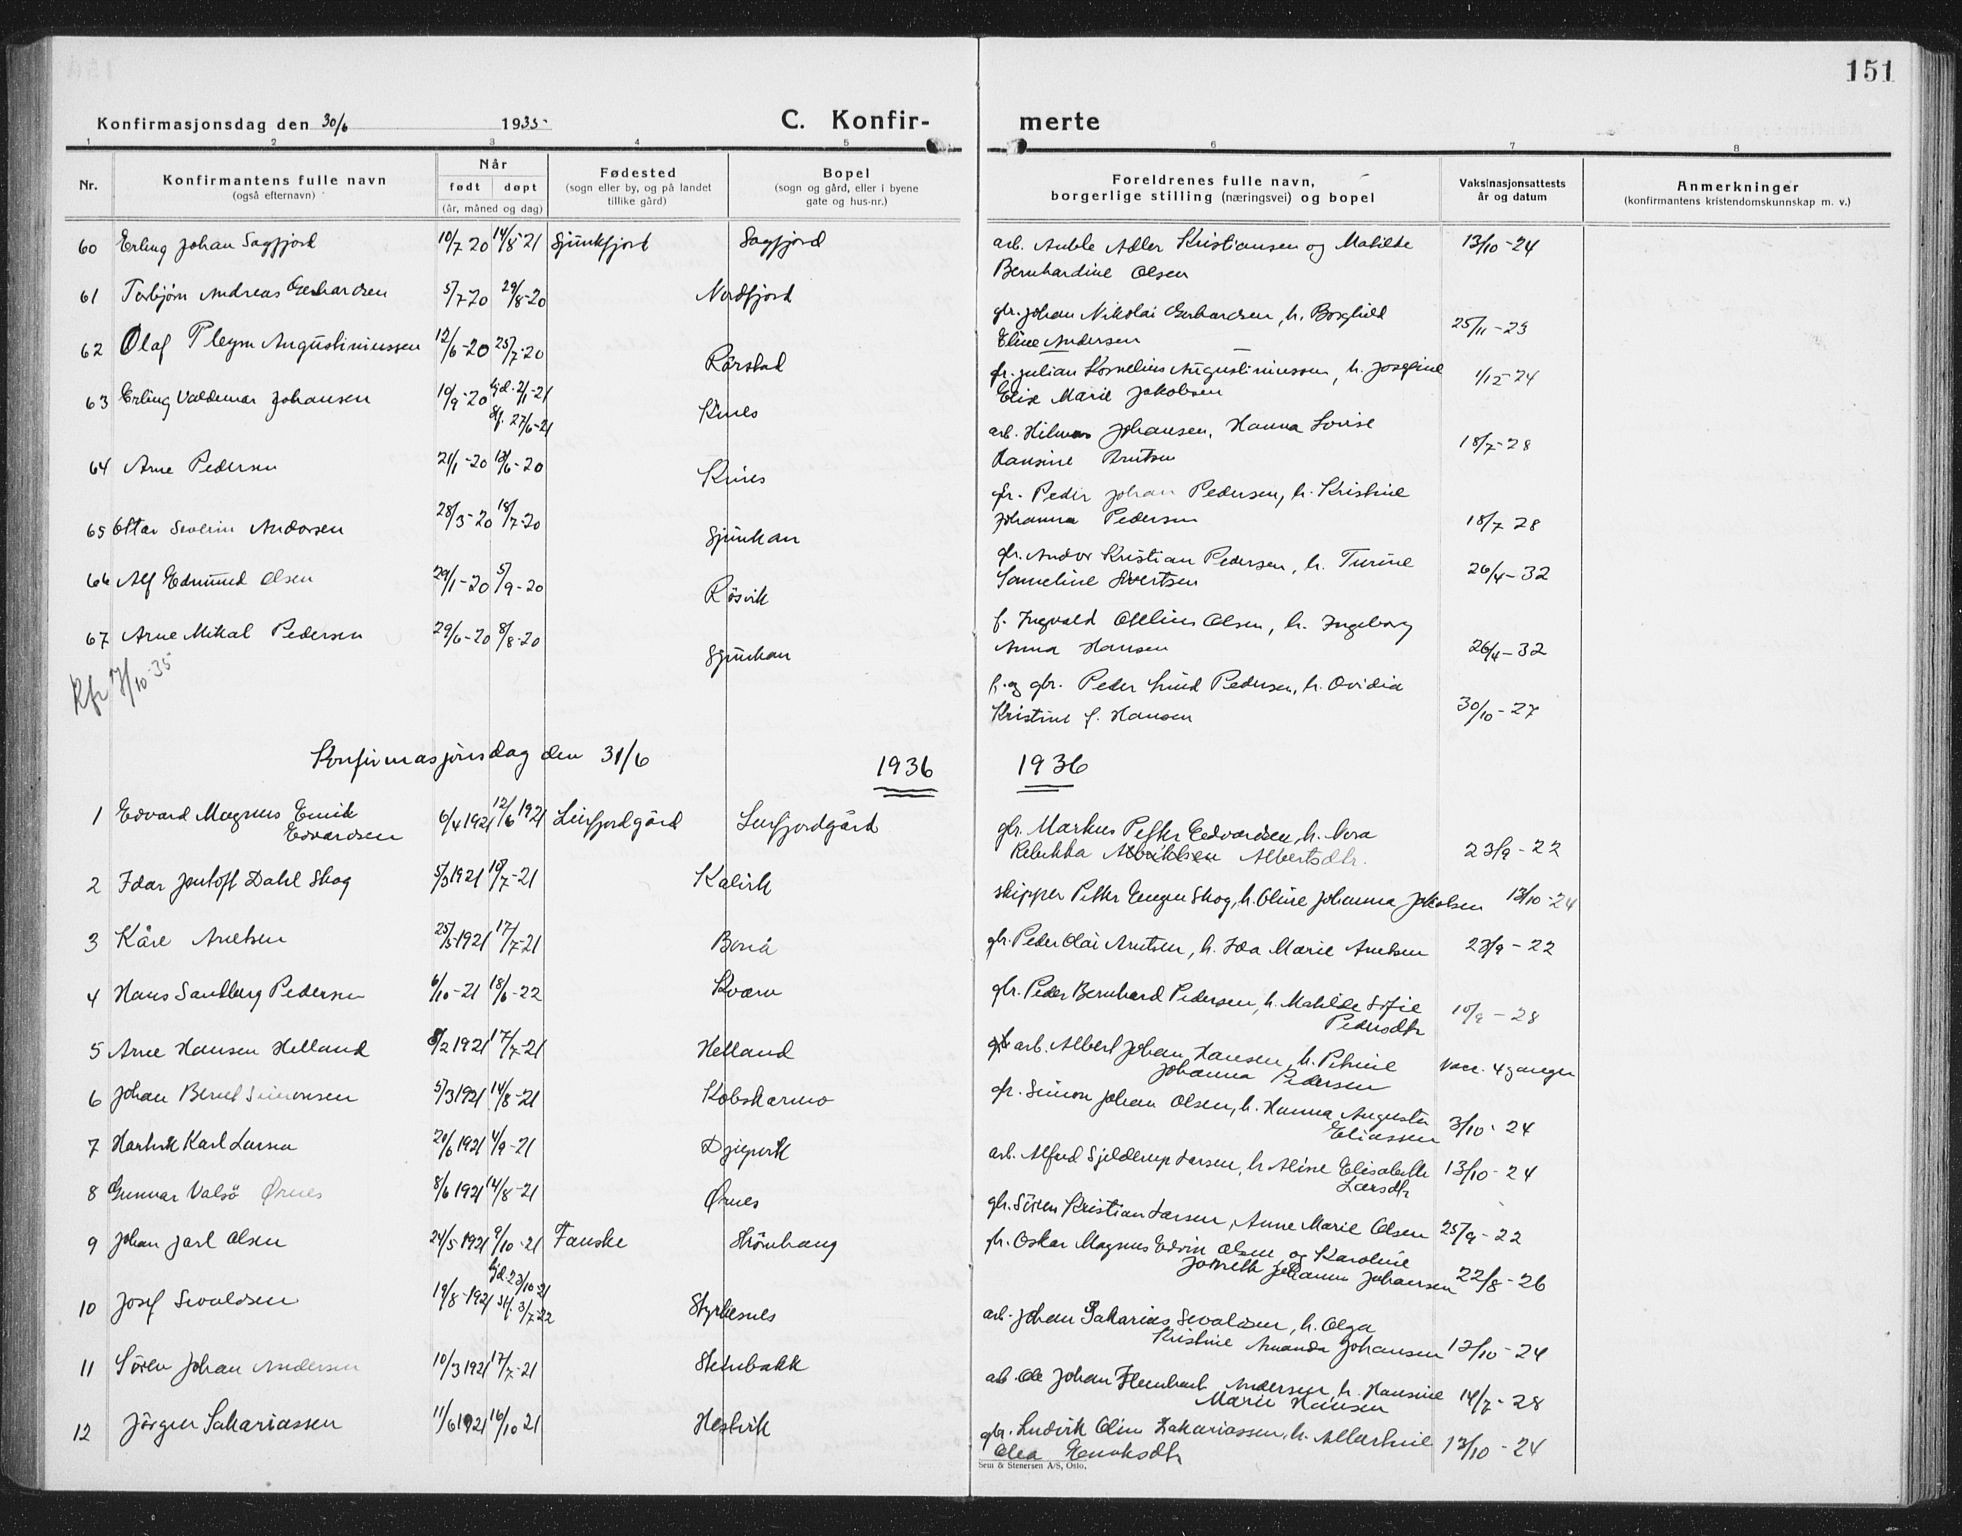 151
Konfirmasjonsdag den 30/6 1935
C. Konfir-
merte
1 2 3 4 5 6 7 8
Nr.
Konfirmantens fulle navn
(også efternavn)
Når
født døpt
(år, måned og dag)
Fødested
(sogn eller by, og på landet
tillike gård)
Bopel
(sogn og gård, eller i byene
gate og hus-nr.)
Foreldrenes fulle navn,
borgerlige stilling (næringsvei) og bopel
Vaksinasjonsattests
år og datum
Anmerkninger
(konfirmantens kristendomskunnskap m. v.)
60 Erling Johan Sagfjord 10/7 20 14/8-21 Sjunkfjord Sagfjord arb. Adler Kristiansen og Matilde 13/10-24
Bernhardine Olsen
61 Torbjørn Andreas Gerhardsen 5/7-20 29/8-20 Nordfjord gbr. Johan Nikolai Gerhardsen, h. Borghild 25/11-23
Eline Andersen
62 Olaf Pleym Augustinussen 12/6-20 25/7-20 Rørstad fr. Julian Kornelius Augustinussen, h. Josefine 1/12-24
Elise Marie Jakobsen
63 Erling Valdemar Johansen 10/9-20 hjd. 2/1-21 Kines arb. Hilmar Johansen, Hanna Lovise 18/7-28
27/6-21
Hansine
64 Arne Pedersen 21/1-20 13/6-20 Kines gbr. Peder Johan Pedersen, h. Kristine
Johanna Pedersen 18/7 28
65 Ottar Severin Andorsen 28/3-20 18/7-20 Sjunkan gbr. Andor Kristian Pedersen, h. Turine 26/4-32
Sivertsen
66 Alf Edmund Olsen 29/1-20 5/9-20 Røsvik f. Ingvald Olsen, h. Ingeborg
Anna Hansen 26/4-32
67 Arne Mikal Pedersen 29/6-20 8/8-20 Sjunkan f. og gbr. Peder Lund Pedersen, h. Ovidia
Kristine f. Hansen 30/10-27
Rfr 17/10-35
Konfirmasjonsdag den 31/6 1936 1936
1 Edvard Magnus Emik 6/4 1921 12/6 1921 Leirfjordgård Leirfjordgård gbr. Markus Petter Edvardsen, h. Nora
Edvardsen Rebekka Albertsdtr. 23/9-22
2 Idar Dahl Skog 5/3 1921 10/7-21 Kalvik skipper Petter Eugen Skog, h. Oline Johanna Jakobsen 13/10-24
3 Kåre Arntsen 25/5 1921 17/7-21 Bonå gbr. Peder Olai Arntsen, h. Ida Marie Arntsen 23/9-22
4 Hans Sandberg Pedersen 6/10-21 18/6-22 Kvarv gbr. Peder Bernhard Pedersen, h. Matilde Sofie 10/9-28
Pedersdtr
5 Arne Hansen Helland 8/2 1921 17/7-21 Helland arb. Albert Johan Hansen, h. Petrine Vacc. 4 ganger
Johanna Pedersen
6 Johan Bernt Simonsen 5/3 1921 14/8-21 Kobskarmo gbr. Simon Johan Olsen, h. Hanna Augusta 3/10-24
Eliassen
7 Hartvik Karl Larsen 20/6 1921 4/9-21 Djupvik arb. Alfred Sjelderup Larsen, h. Aline Elisabeth 13/10-24
Larsdtr
8 Gunnar Valsö Ørnes 8/6 1921 14/8-21 Ørnes gbr. Sören Kristian Larsen, Anne Marie Olsen 25/9-22
9 Johan Jarl Olsen 24/5-1921 9/10-21 Fauske Strömhaug gbr. Oskar Magnus Edvin Olsen og Karoline
Johanna Johansen 22/8-26
10 Josef Sevaldsen 19/8-1921 hjd. 23/10-21 Styrkesnes arb. Johan Sakarias Sevaldsen, h. Olga
3/7-22
Kristine Amanda Johansen 13/10-24
11 Sören Johan Andersen 10/3 1921 17/7-21 Stenbakk arb. Ole Johan Andersen, h. Hansine 14/7-28
Marie Hansen
12 Jörgen Sakariassen 11/6 1921 16/10 21 Hestvik gbr. Ludvik Olin Zakariassen, h. Albertine 13/10-24
Olea Enoksdtr
Sem & Stenersen A/S, Oslo.